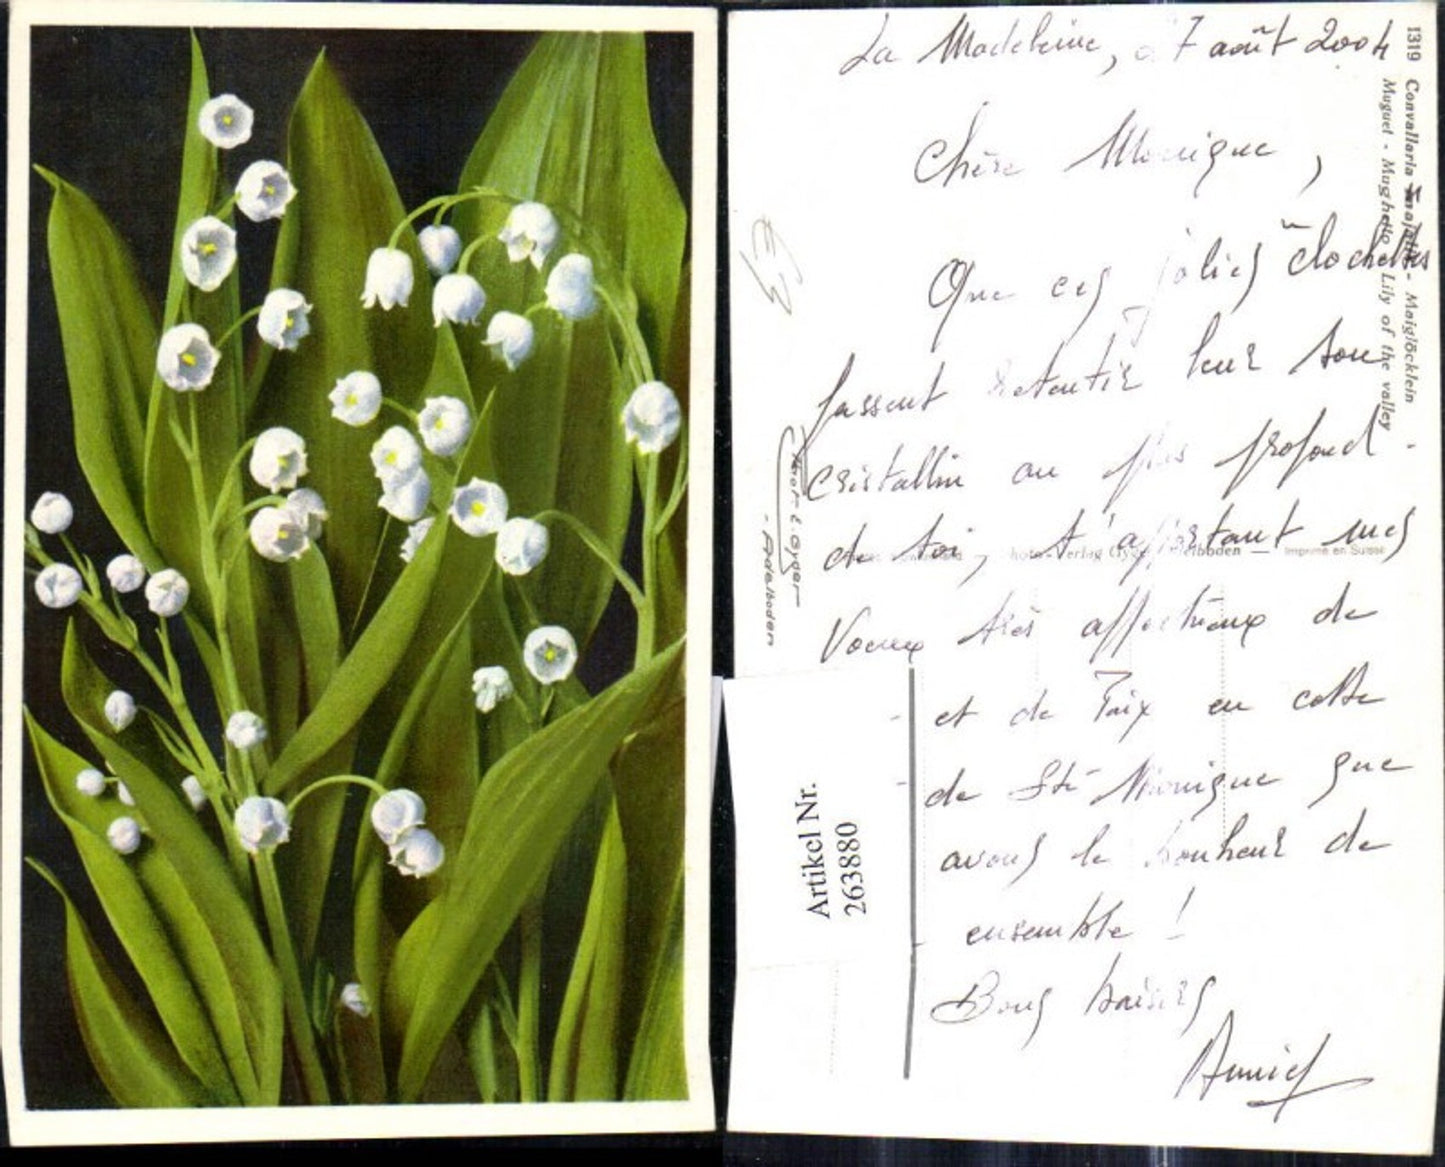 La Madeleine, 27 août 2004
Chère Monique,
Que ces jolies clochettes
fassent retentir leur son
cristallin au plus profond
de toi, t'apportant mes
Voeux très affectueux de
et de Paix en cette
de Ste Monique que
avons le bonheur de
ensemble !
Bons baisers
Annie
1319 Convallaria majalis - Maiglöcklein
Muguet - Mughetto - Lily of the valley
Phot. E. Gyger
- Adelboden
Verlag Gyger Adelboden — Imprimé en Suisse
Artikel Nr.
263880